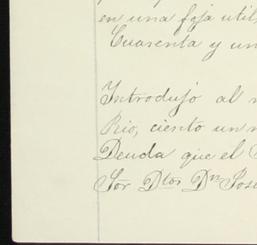 en una foja util,
Cuarenta y un
Introdujó al
Rio, ciento un
Deuda que el
Sor Dtos Dn José